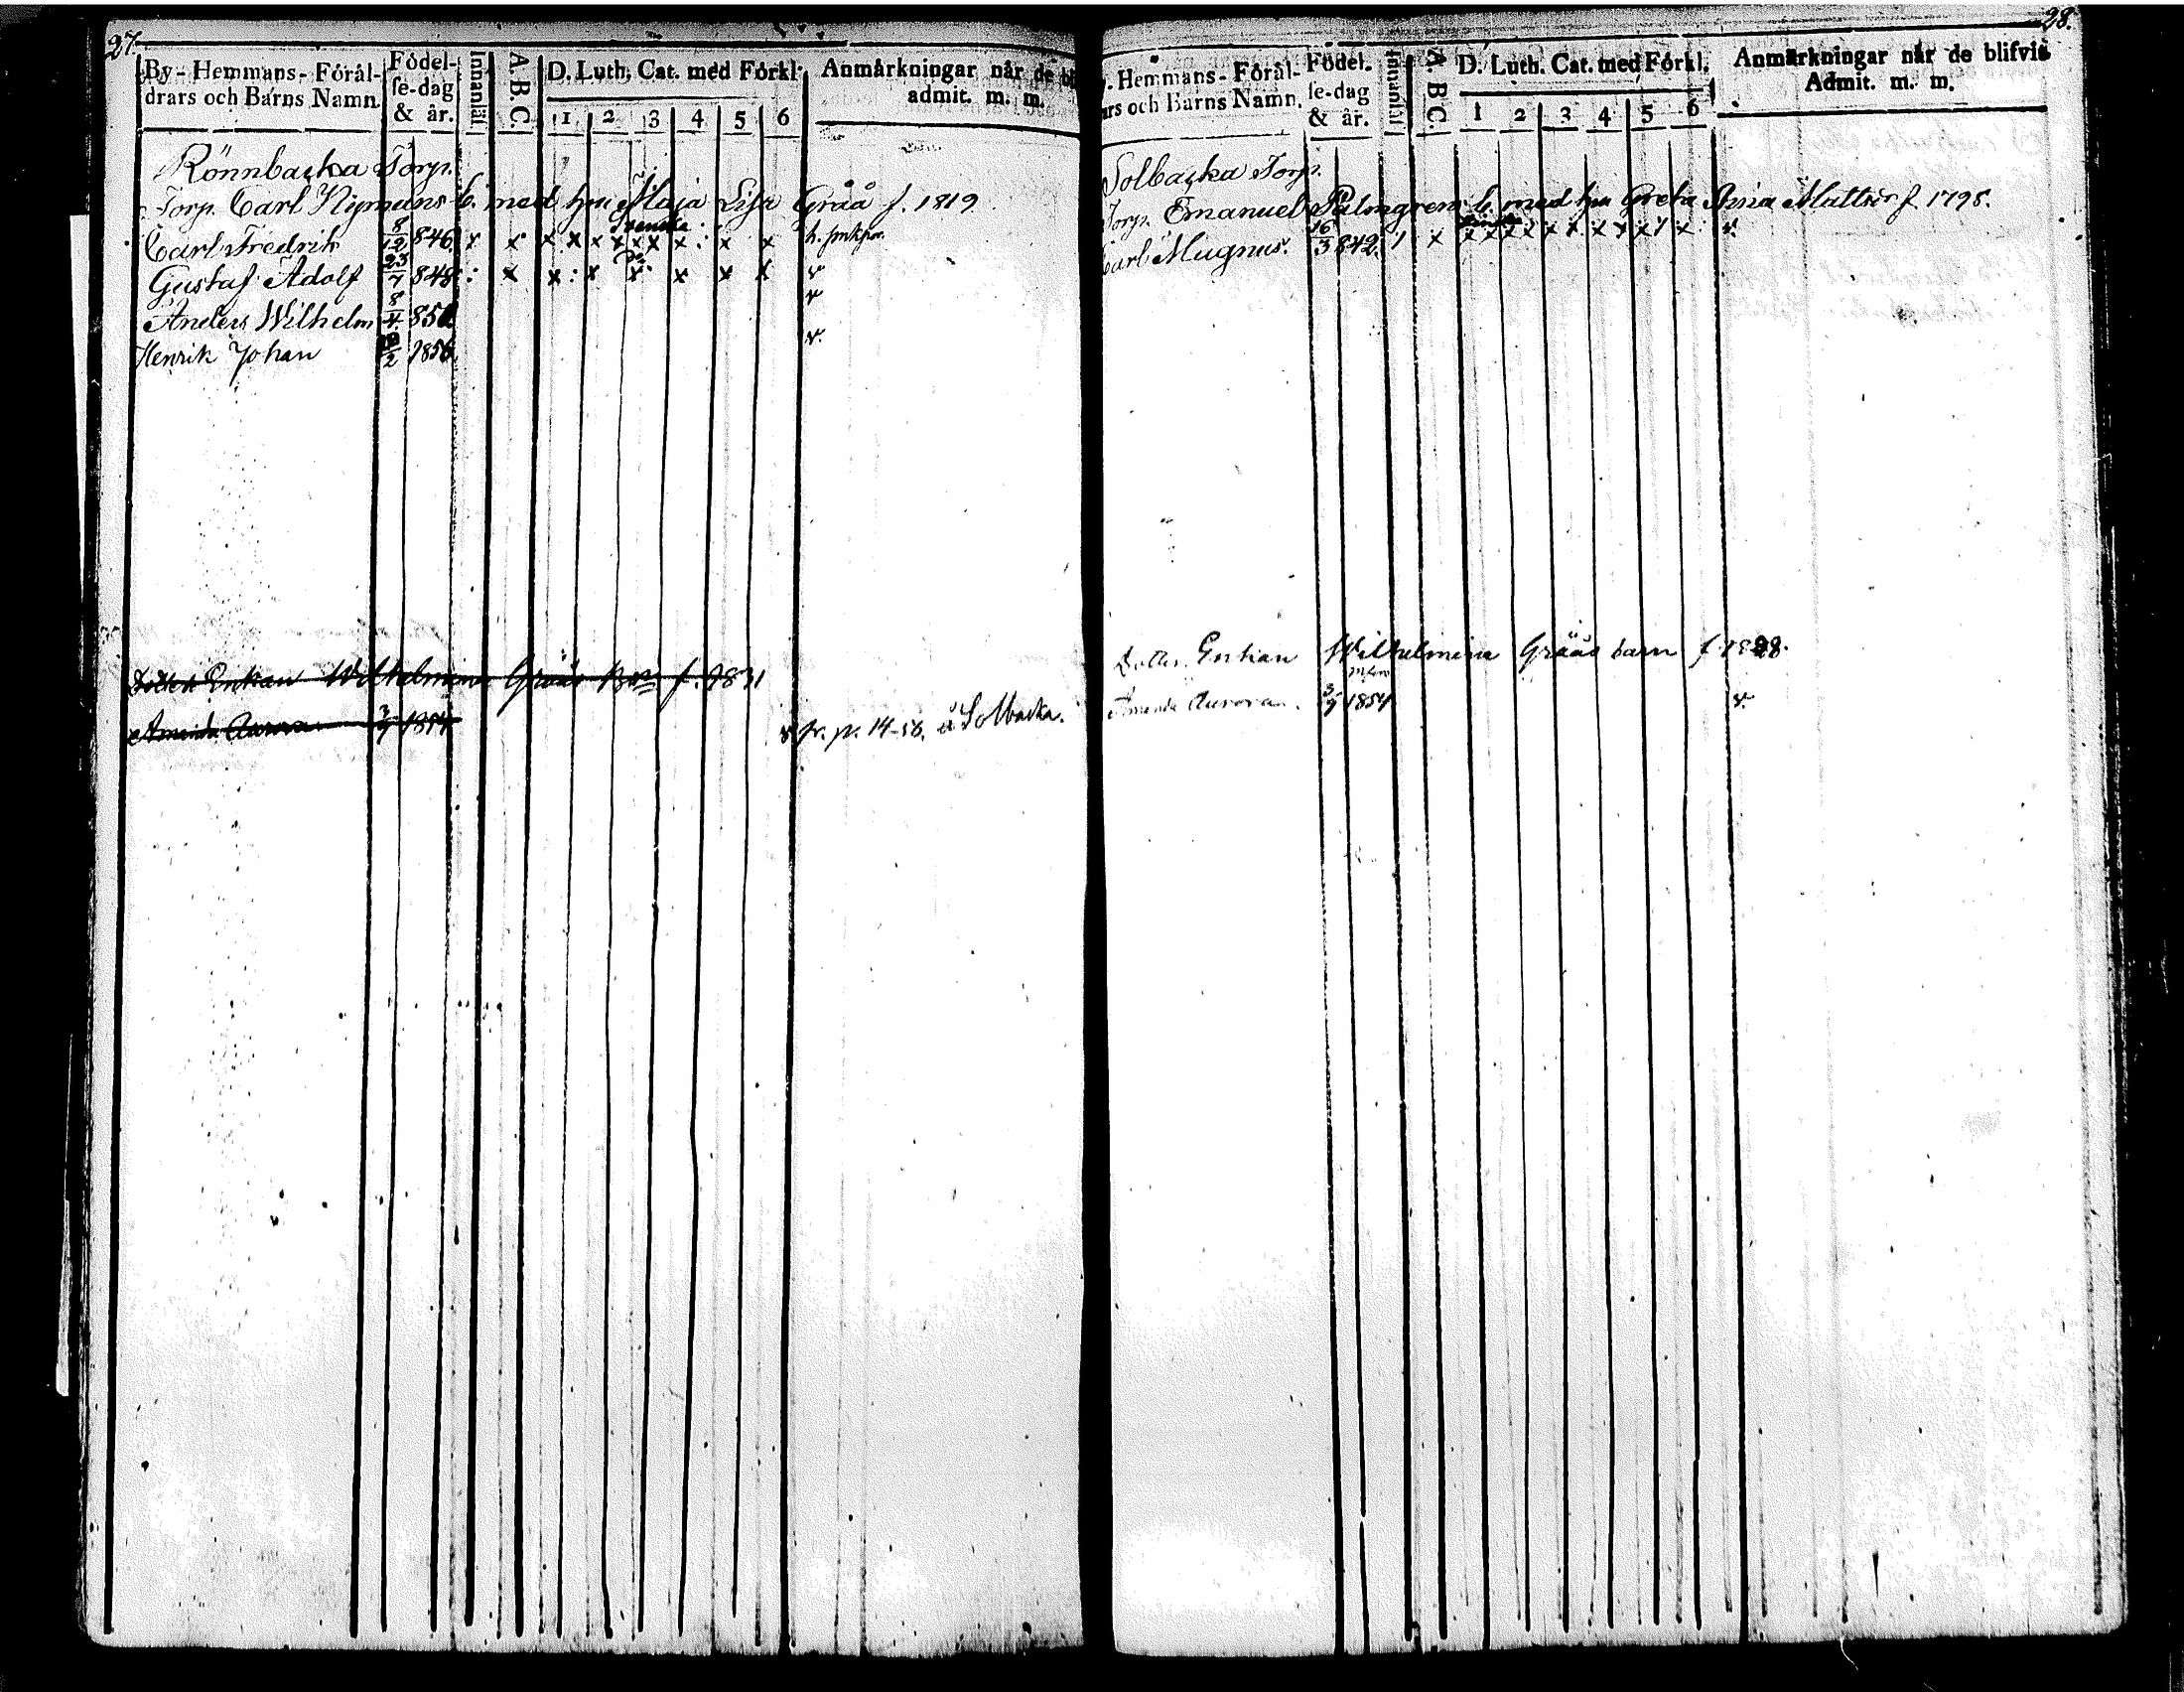 27.
By-Hemmans-Föräl-
drars och Barns Namn.
Födel-
se-dag
& år.
Innanläs.
A. B. C.
D. Luth. Cat. med Förkl.
1 2 3 4 5 6
Anmärkningar når de bli
admit. m. m.
Rönnbacka Torp.
Torp. Carl Nymans b. med hu Maja Lisa Gråå f. 1819
Svenska
Carl Fredrik 8/12 846. x x x x x x x x x x
Gustaf Adolf 23/7 848 : x x : x x x x x v
Anders Wilhelm 8/4 850 v
Henrik Johan /2 1856 v.
Enkan Wilhelmina Gråås Barn f. 1831
Amanda Aurora 3/9 1854 v. fr. p. 14-58. å Solbacka.
28.
. Hemmans-Föräl-
ars och Barns Namn.
Födel.
se-dag
& år.
Innanläs
A. B C.
D. Luth. Cat. med Förkl.
1 2 3 4 5 6
Anmärkningar når de blifvit
Admit. m. m.
Solbacka Torp.
Torp. Emanuel Palmgrens b. med hu Greta Anna Mattsdr f. 1798.
Carl Magnus. 16/3 842. / x x x x x x x x x x x v.
Enkan Wilhelmina Gråås barn f. 1828.
Amanda Aurora. 3/9 1854 v.